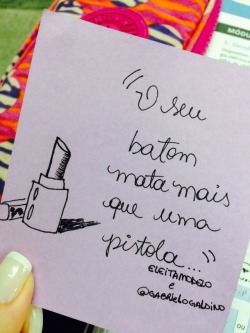 "O seu
batom
mata mais
que uma
pistola..."
ELEITAMODELO
E
@GABRIELOGALDINO
MÓDU